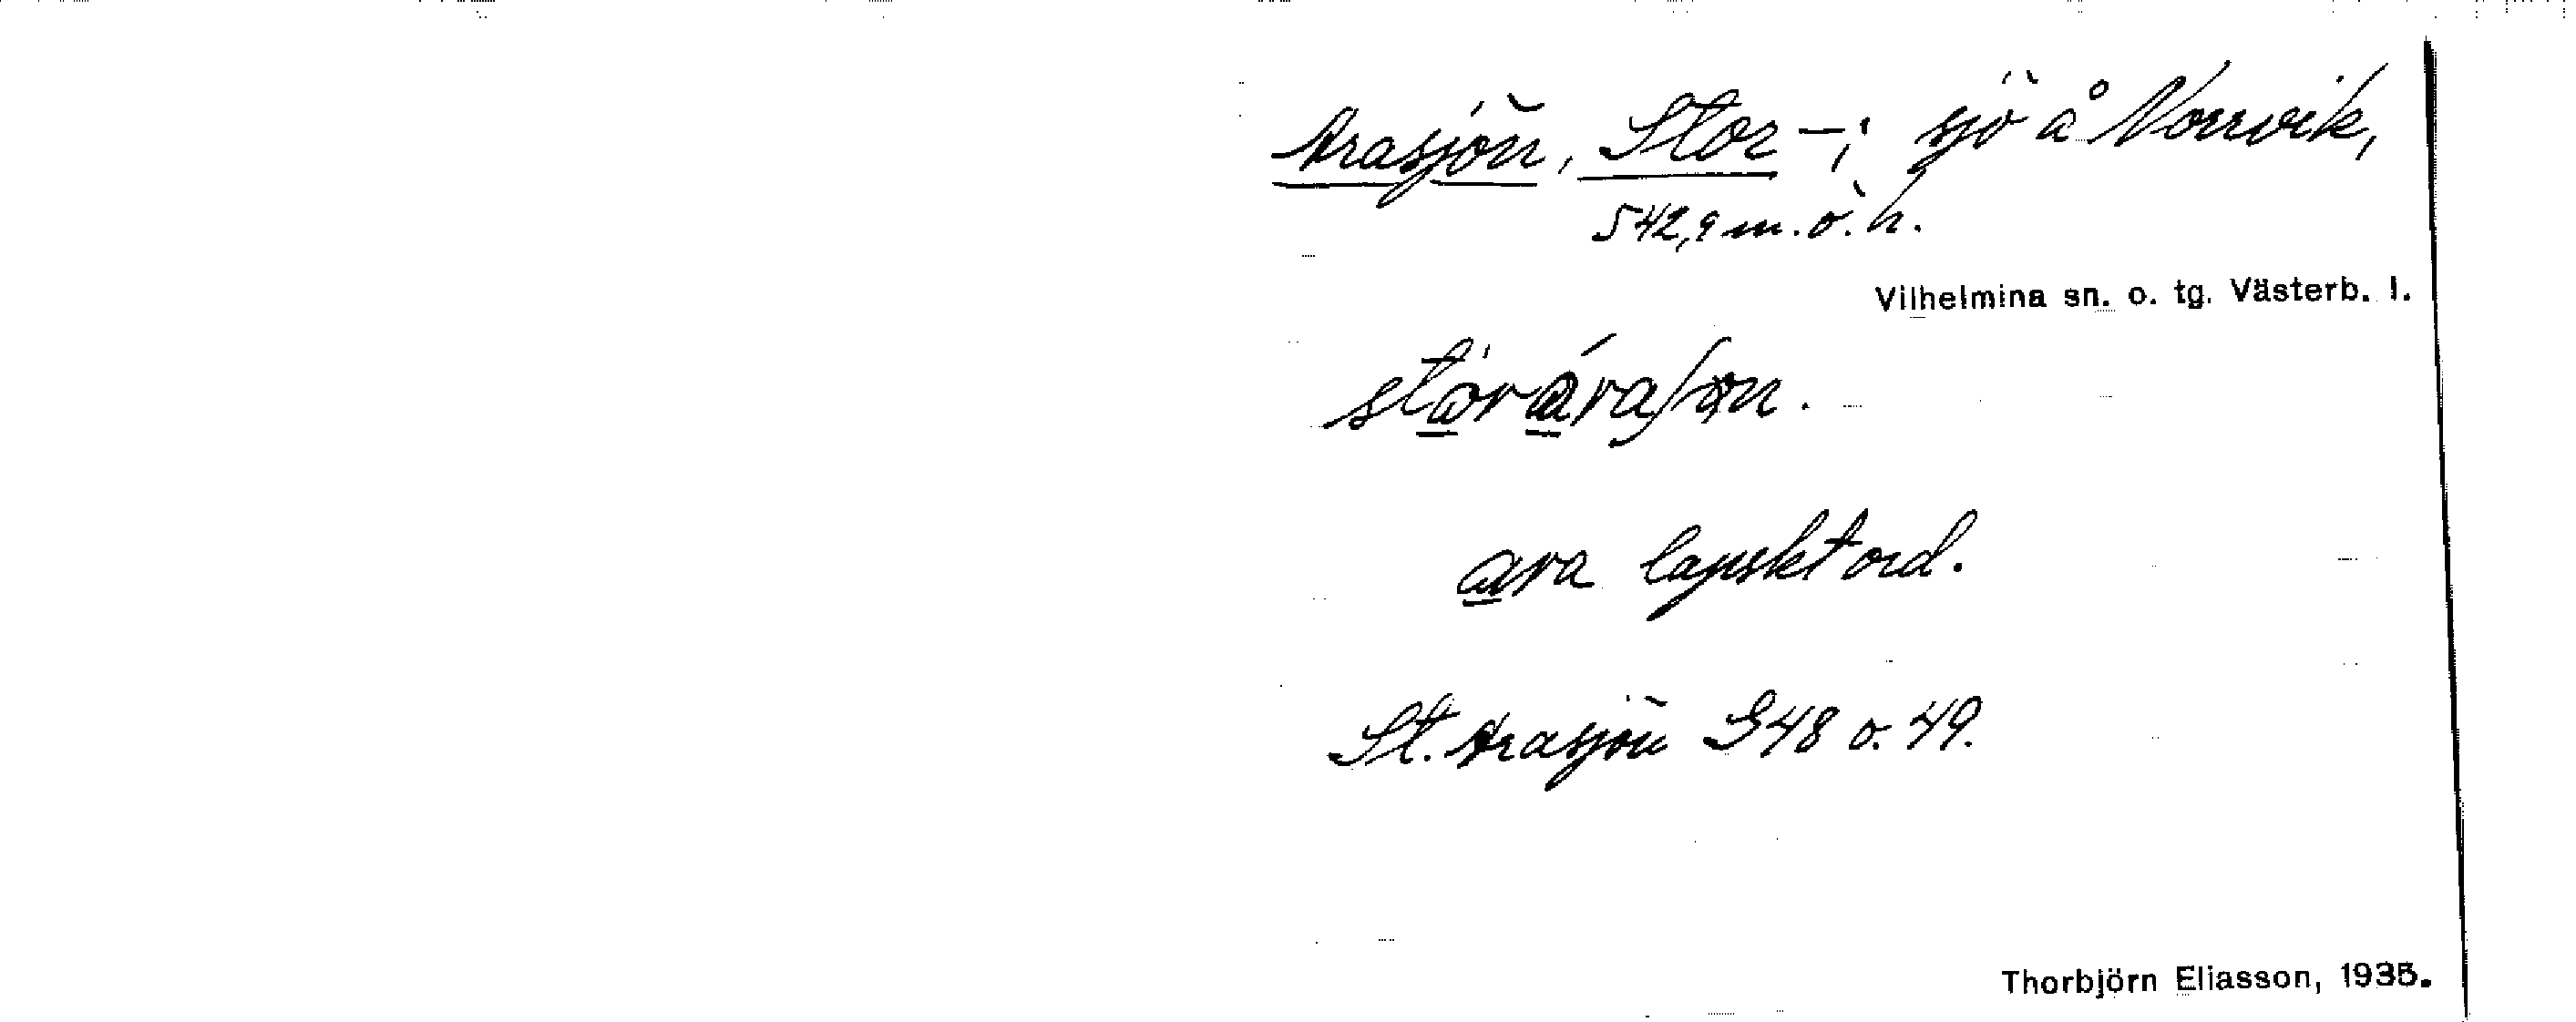 Arasjön, Stor-; sjö å Norrvik,
542,9 m.ö.h.
Vilhelmina sn. o. tg. Västerb. l.
ara lapskt ord.
St. Arasjön G48 o. 49.
Thorbjörn Eliasson, 1935.